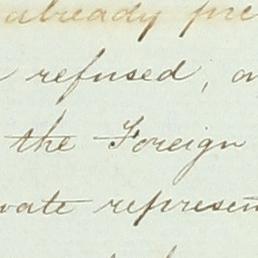 already pre
refused, o
the Foreign
vate represen